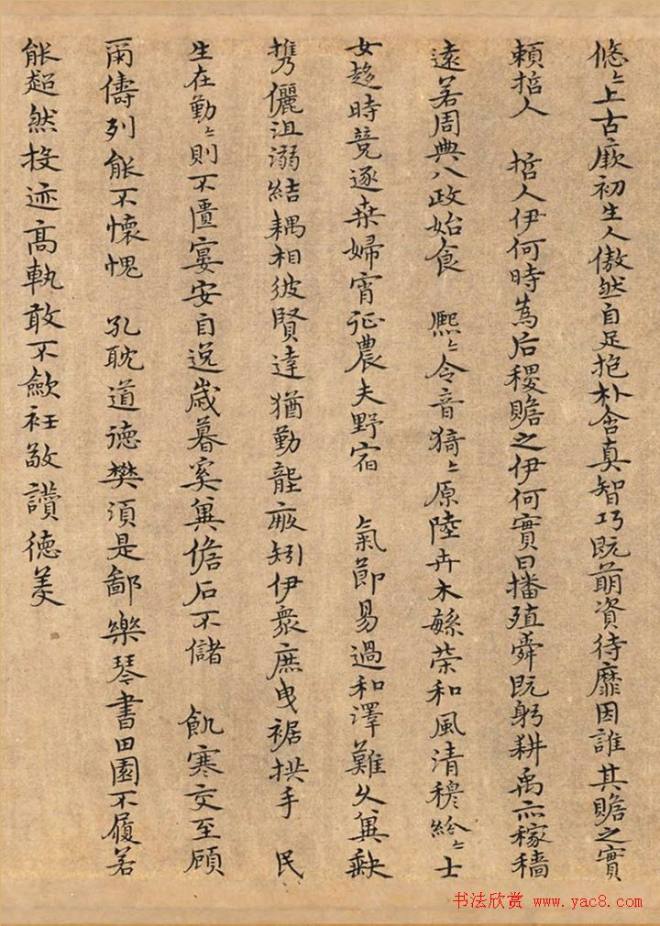 悠〻上古厥初生人傲然自足抱朴含真智巧既萠資待靡因誰其贍之實
頼哲人 哲人伊何時為后稷贍之伊何實曰播殖舜既躬耕禹亦稼穡
遠若周典八政始食 熈〻令音猗〻原陸卉木繁荣和風清穆紛〻士
女趍時競逐桒婦宵征農夫野宿 氣節易過和澤難久兾缺
携儷沮溺結耦相彼賢達猶勤壟畝矧伊衆庶曳裾拱手 民
生在勤〻則不匱宴安自逸歳暮奚兾儋石不儲 飢寒交至顧
尔儔列能不懷愧 孔耽道德樊湏是鄙樂琴書田園不履若
能超然投迹高軌敢不歛衽敬讃德美
书法欣赏 www.yac8.com